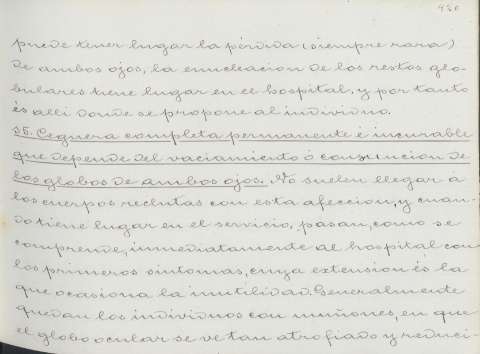 430
puede tener lugar la pérdida (siempre rara)
de ambos ojos, la enucleacion de los restos glo-
bulares tiene lugar en el hospital, y por tanto
és alli donde se propone al individuo.
35. Ceguera completa permanente é incurable
que depende del vaciamiento ó consuncion de
los globos de ambos ojos. No suelen llegar á
los cuerpos reclutas con esta afeccion, y cuan-
do tiene lugar en el servicio, pasan, como se
comprende, inmediatamente al hospital con
los primeros sintomas, cuya extension és la
que ocasiona la inutilidad. Generalmente
quedan los individuos con muñones, en que
el globo ocular se ve tan atrofiado y reduci-